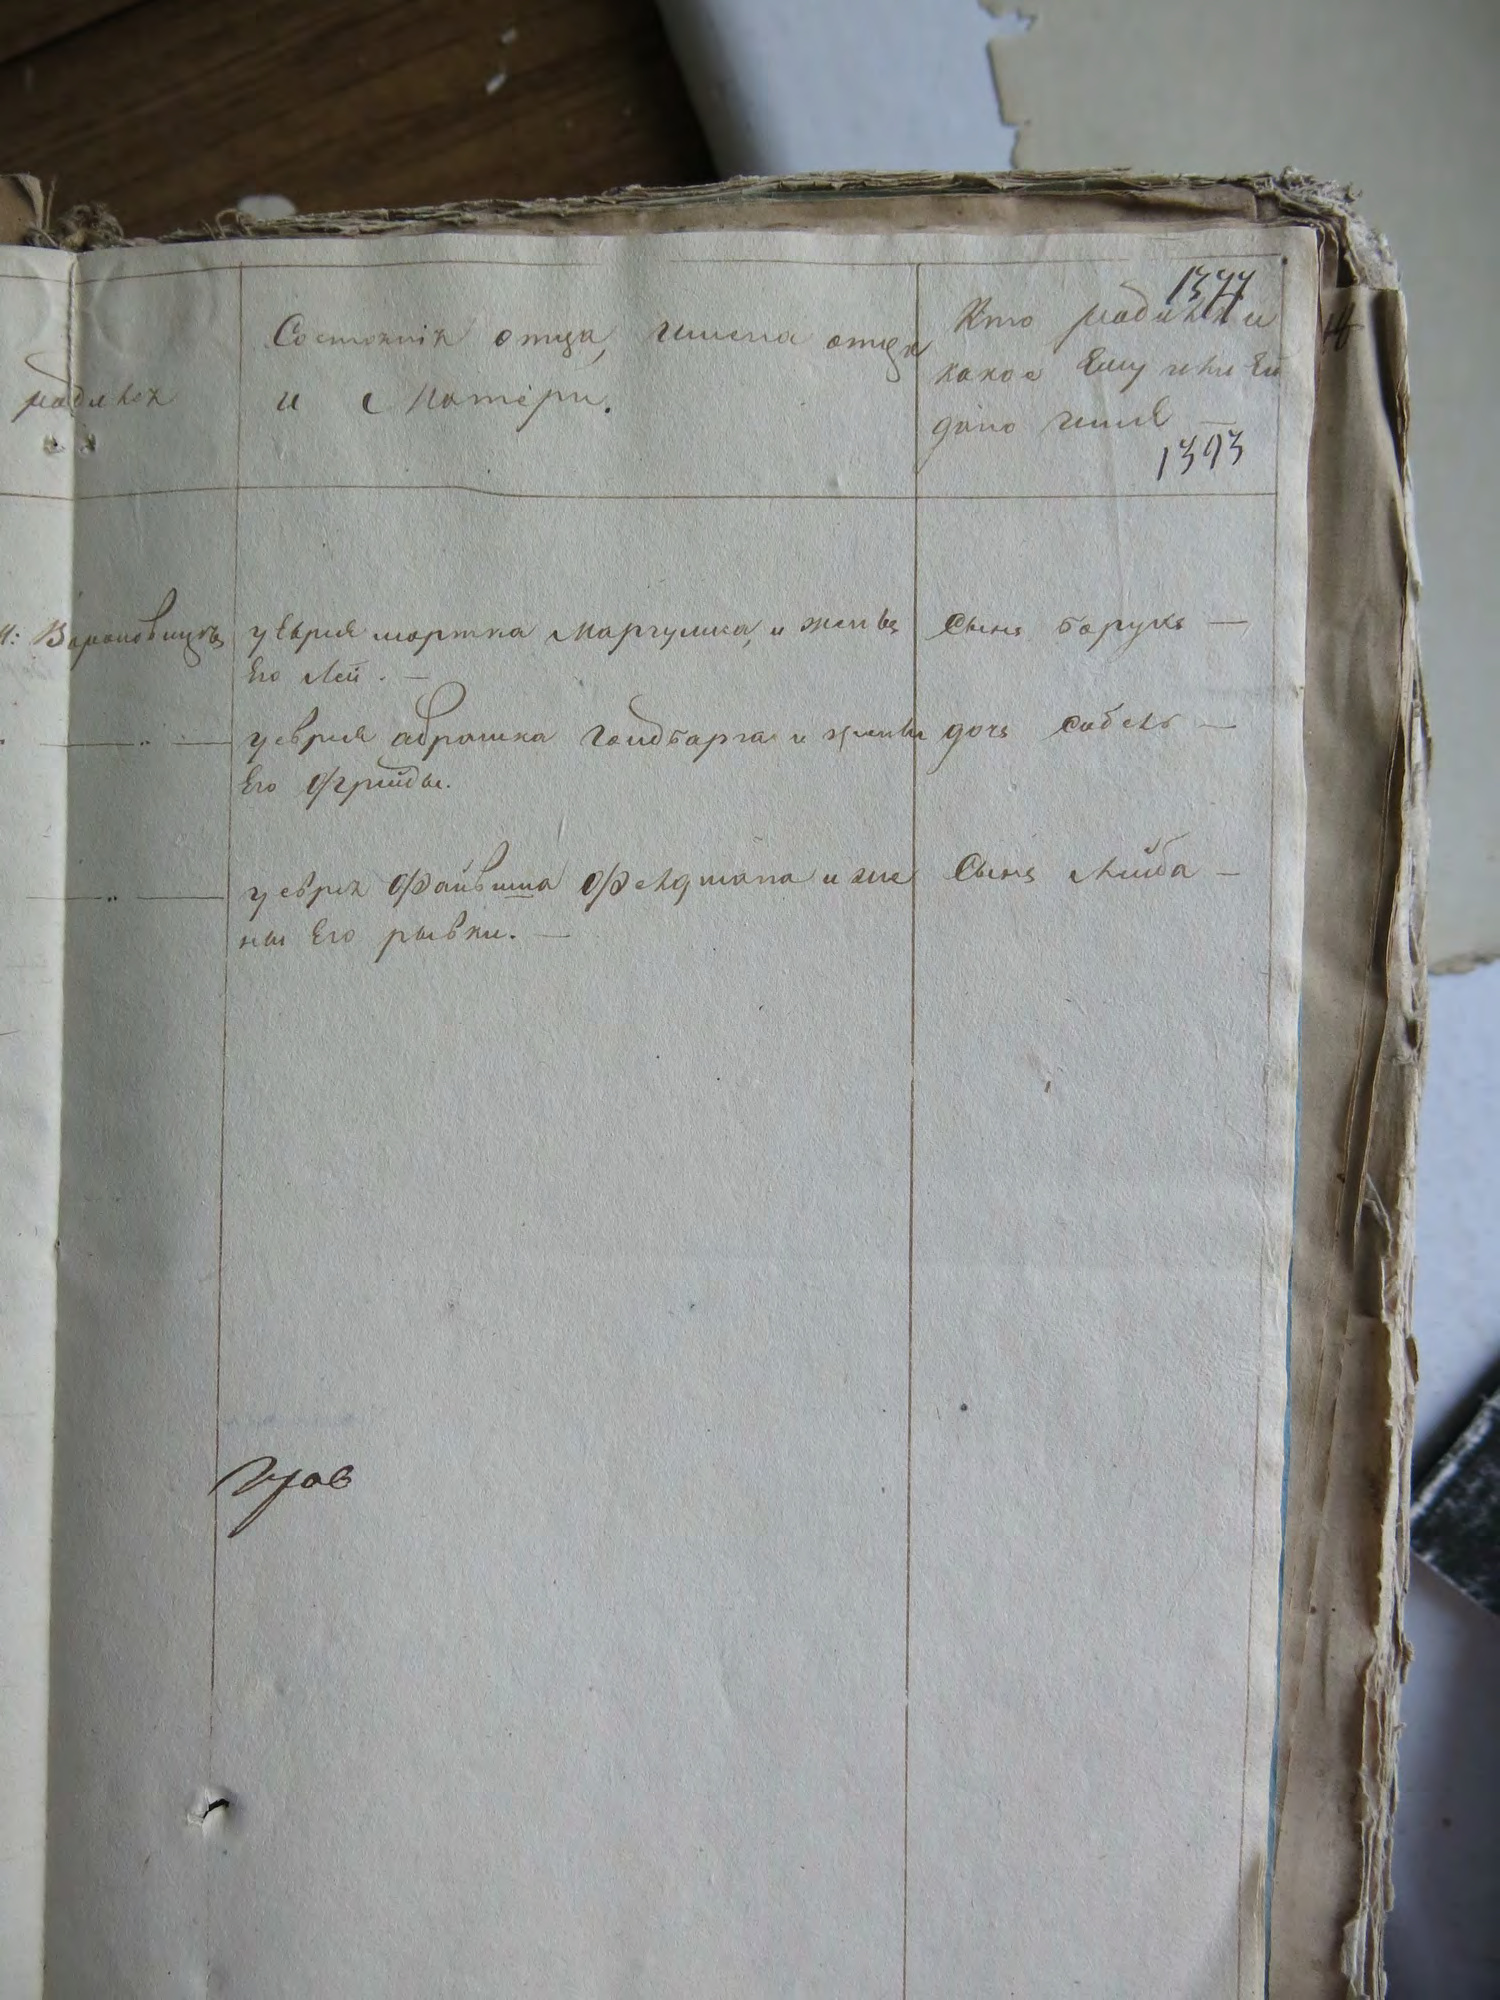 1377
родился
Состояние отца, имена отца
и Матери.
Кто родился и
какое Ему или Ей
дано имя —
1393
Вороновицах
у Еврея мортка Маргулиса, и жены
Его Леи. —
Сынъ барухъ —
у еврея абрашка голдбарга и жены
Его Фрийды.
дочь собель —
у еврея Файвиша Фелдмана и же
ны Его рывки. —
Сынъ Лейба —